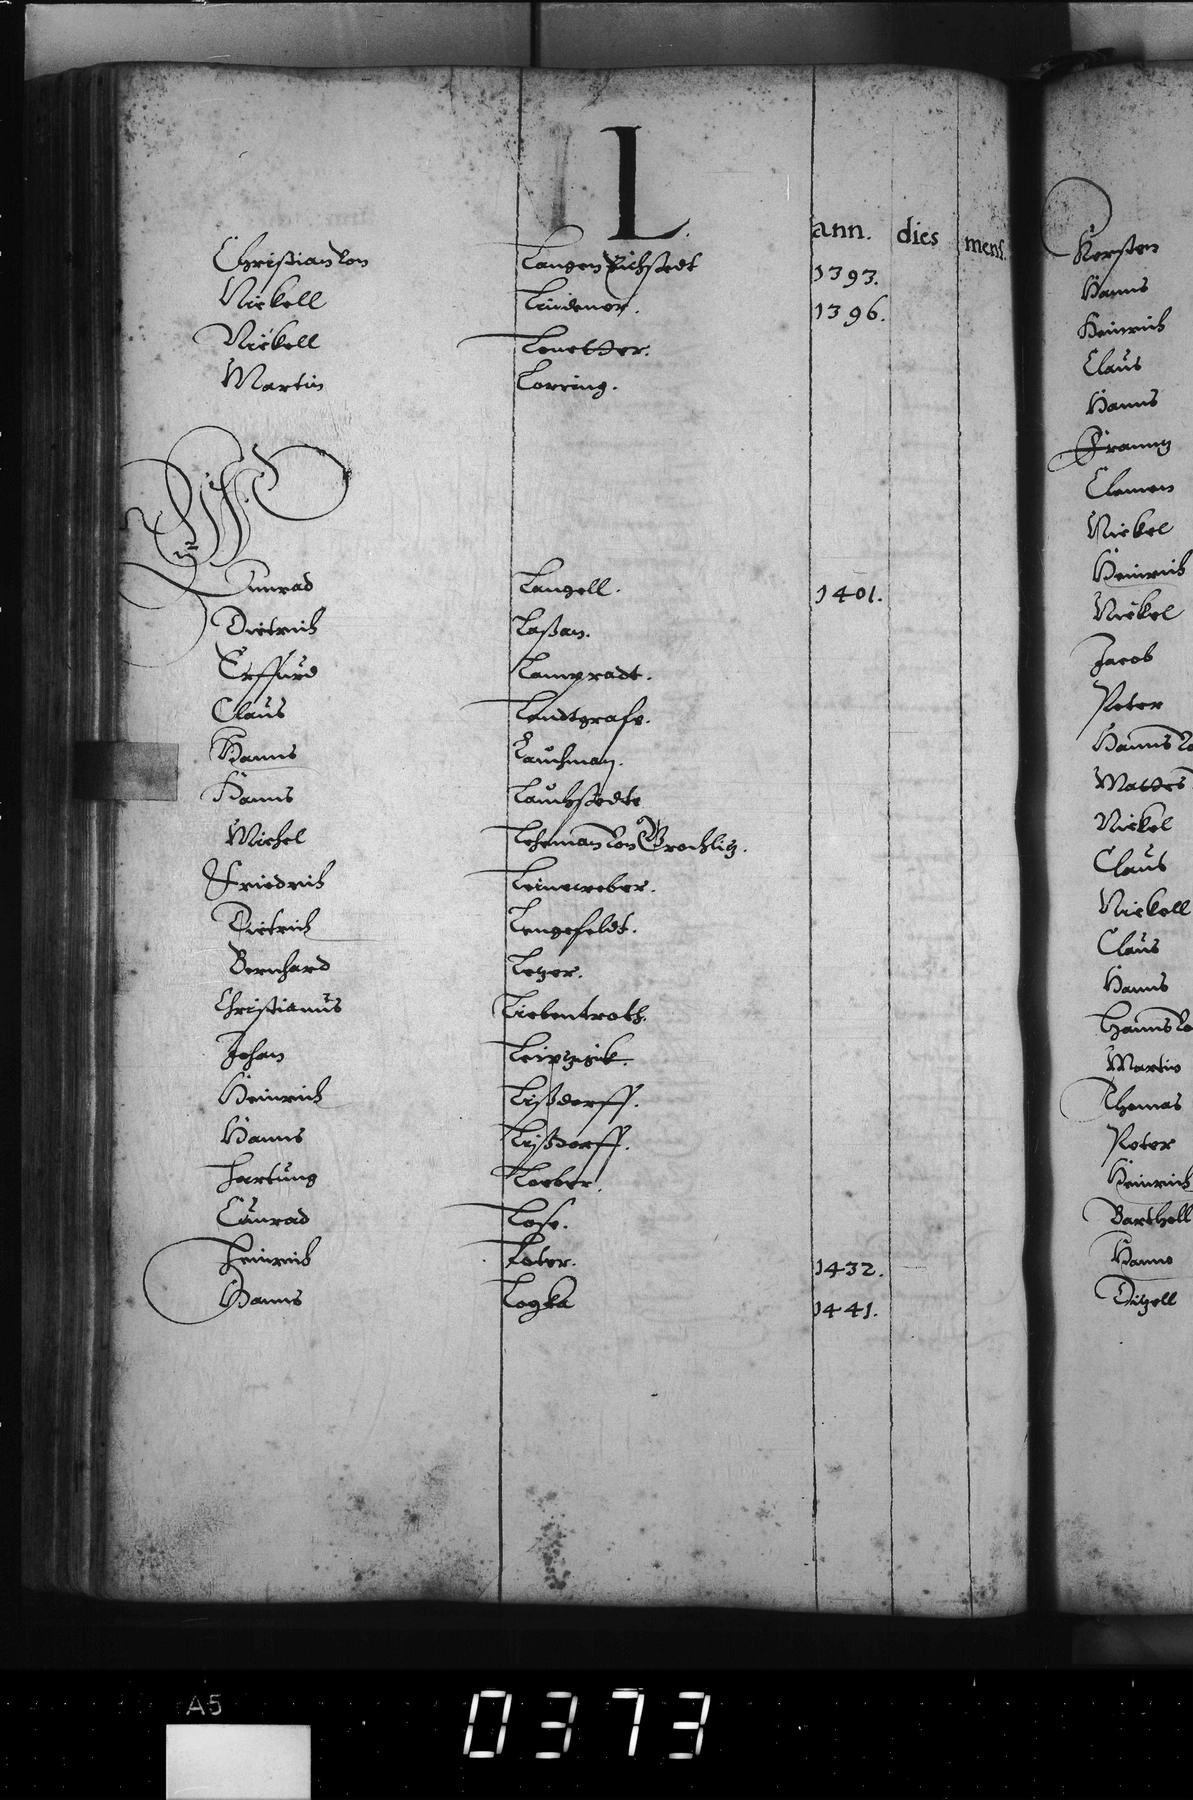 L.
ann. dies mens.
Christian von Langen Eichstedt 1393.
Nickell Lindener. 1396.
Nickell
Martin Lorring.
Cunrad Langell. 1401.
Dietrich Laßan.
Erffurd Lampradt.
Claus Landtgrafe.
Hanns Lauchman.
Hanns Lauchstedte
Michel Leheman von Grochlitz.
Friedrich Leineweber.
Dietrich Lengefeldt.
Bernhard Letzer.
Christianus Liebentroth.
Johan Leipzigk.
Heinrich Lißdorff.
Hanns Lißdorff.
Hartung Loeber.
Cunrad Lose.
Heinrich Loter. 1432.
Hanns Logka 1441.
Kersten
Hanns
Heinrich
Claus
Hanns
Frantz
Clemen
Nickel
Heinrich
Nickel
Jacob
Peter
Hanns
Mattes
Nickel
Claus
Nickell
Claus
Hanns
Hanns
Martin
Thomas
Peter
Heinrich
Barthell
Hanns
Ditzell
A5
0373